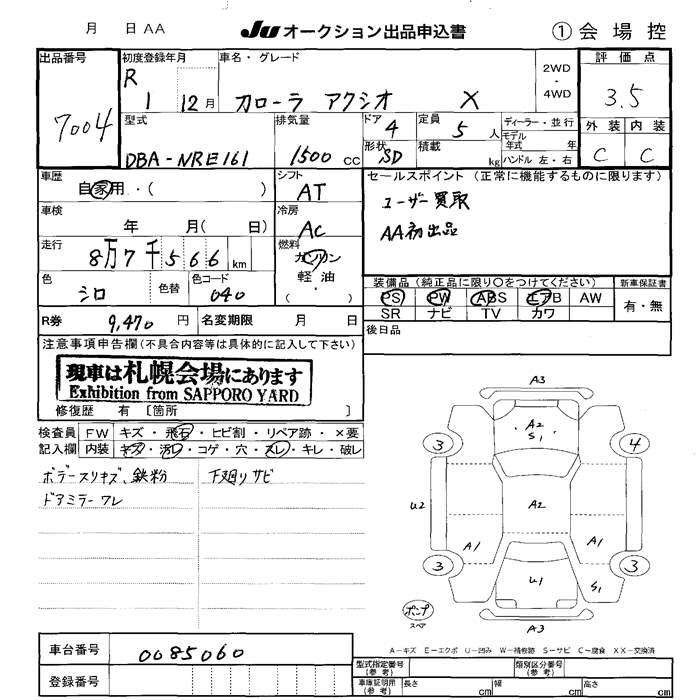 月 日 AA JU オークション出品申込書 ① 会場控
出品番号 初度登録年月 車名・グレード 2WD・4WD 評価点
7004 R 1 12月 カローラ アクシオ X 3.5
型式 排気量 ドア 4 定員 5 人 ディーラー・並行 外装 内装
DBA-NRE161 1500 cc 形状 SD 積載 kg モデル年式 年 C C
ハンドル 左・右
車歴 自家用・( ) シフト AT セールスポイント (正常に機能するものに限ります)
車検 年 月( 日) 冷房 AC ユーザー買取
走行 8万7千566 km 燃料 ガソリン 軽油・( ) AA初出品
色 シロ 色替 色コード 040 装備品(純正品に限り○をつけてください) 新車保証書
PS PW ABS エアB AW 有・無
SR ナビ TV カワ
R券 9,470 円 名変期限 月 日 後日品
注意事項申告欄(不具合内容等は具体的に記入して下さい)
現車は札幌会場にあります
Exhibition from SAPPORO YARD
修復歴 有 [箇所 ]
検査員 FW キズ・飛石・ヒビ割・リペア跡・×要
記入欄 内装 キズ・汚レ・コゲ・穴・スレ・キレ・破レ
ボデースリキズ、鉄粉 下廻りサビ
ドアミラーワレ
A3
A2
S1
3 4
U2 A2
A1 A1
3 3
U1 S1
ポンプ
スペア
A3
A-キズ E-エクボ U-凹み W-補修跡 S-サビ C-腐食 XX-交換済
車台番号 0085060
登録番号
型式指定番号(参考) 類別区分番号(参考)
車庫証明用(参考) 長さ cm 幅 cm 高さ cm